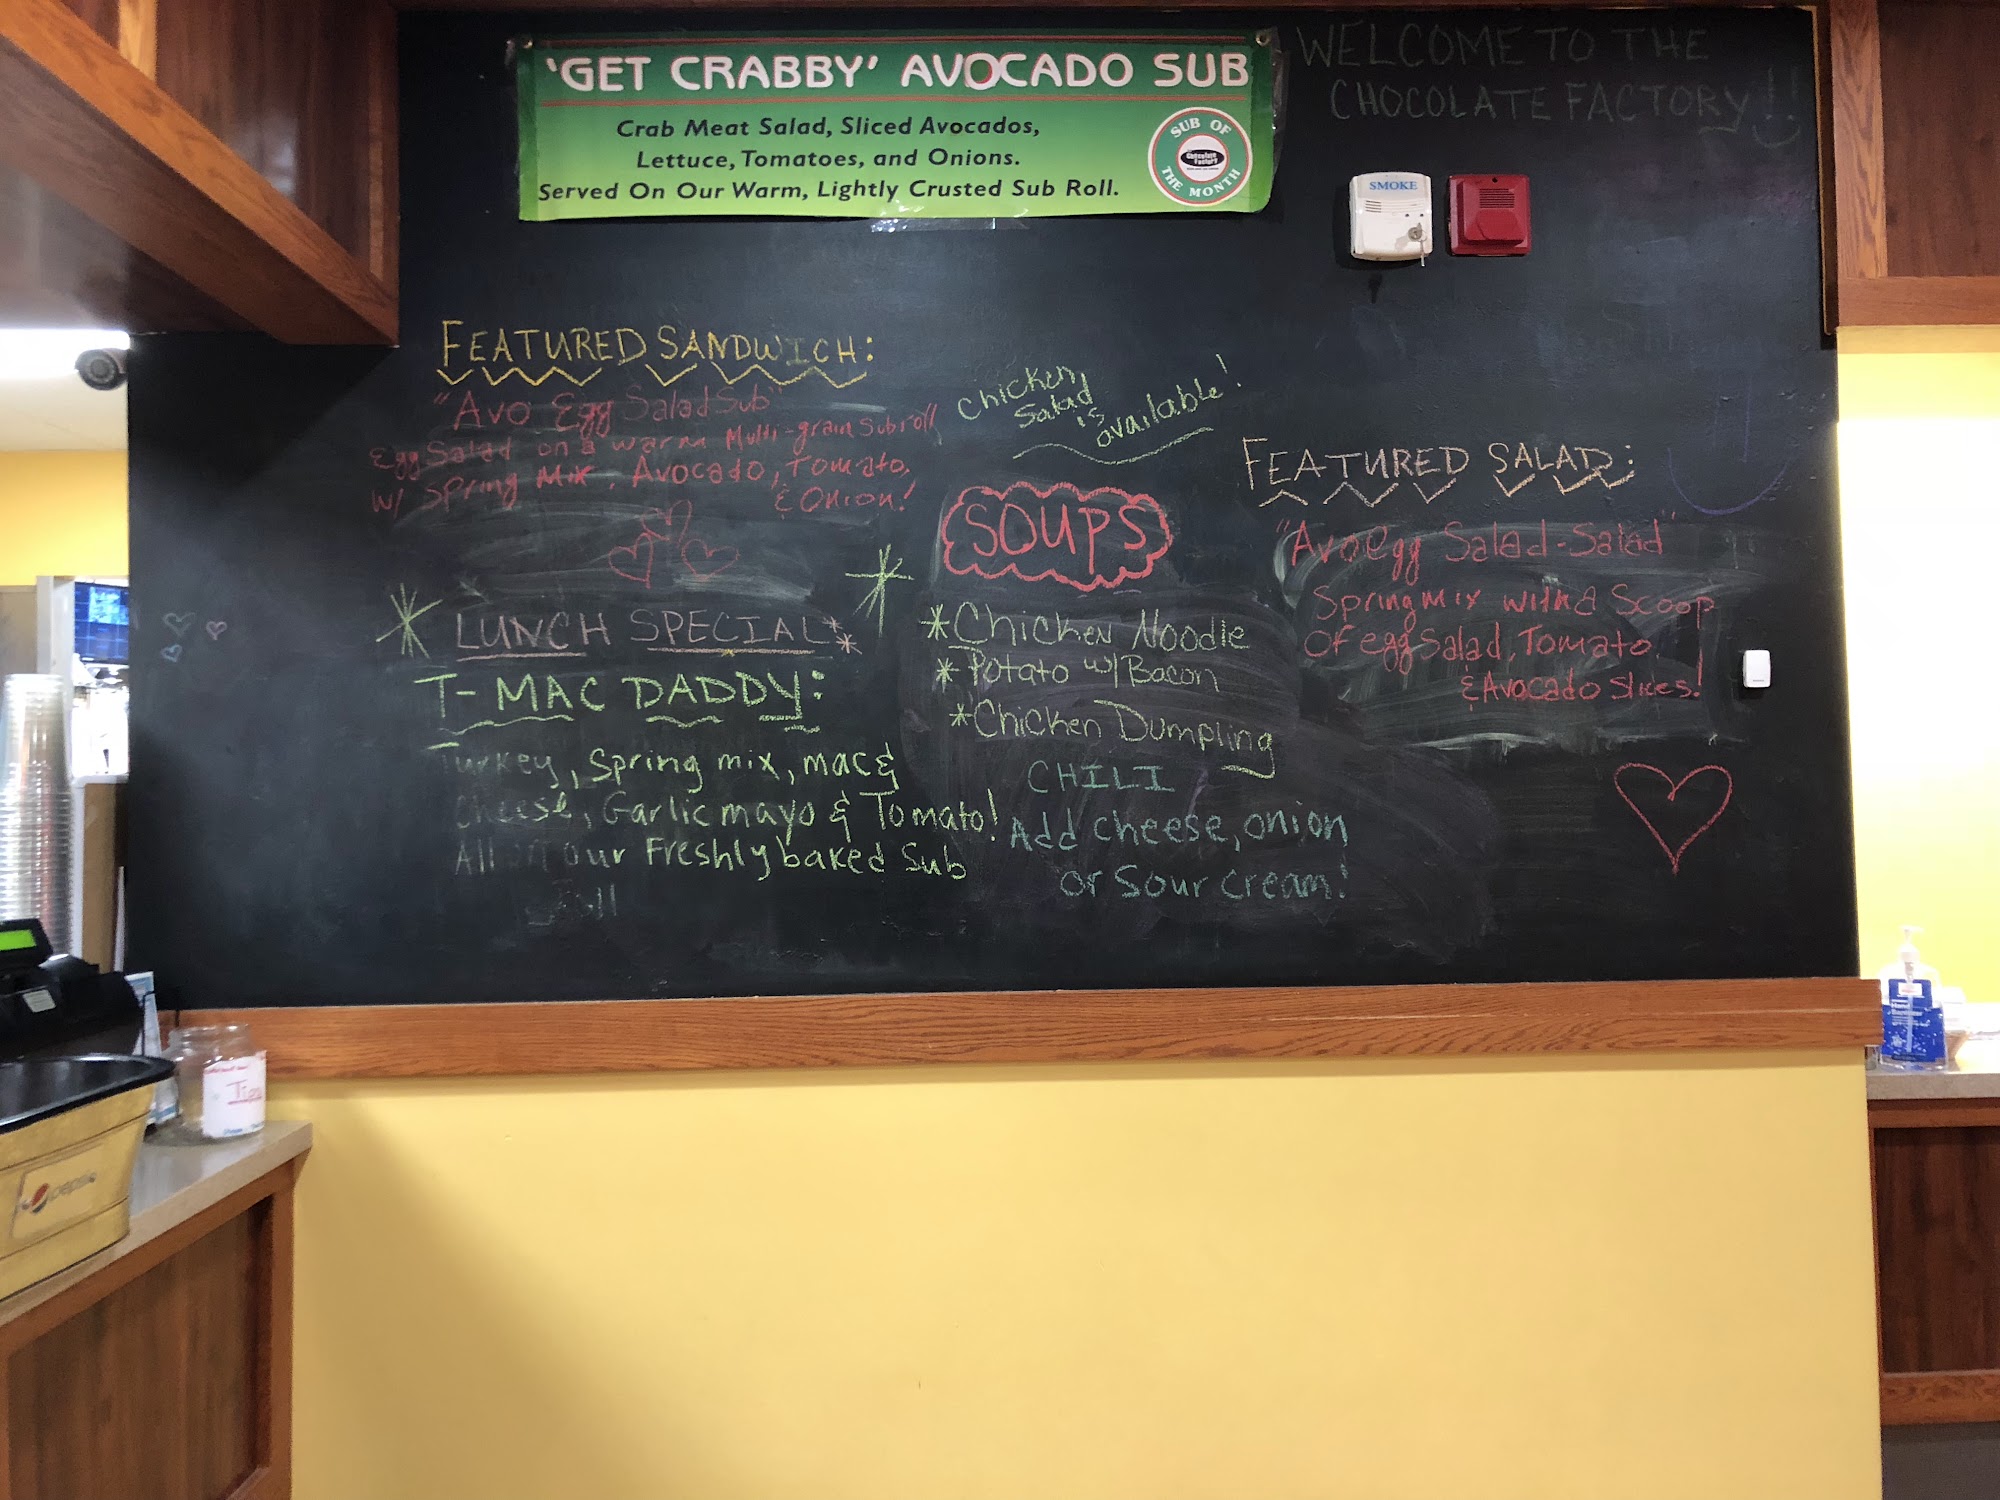 'GET CRABBY' AVOCADO SUB
Crab Meat Salad, Sliced Avocados,
Lettuce, Tomatoes, and Onions.
Served On Our Warm, Lightly Crusted Sub Roll.
SUB OF
Chocolate
Factory
THE MONTH
WELCOME TO THE
CHOCOLATE FACTORY!!
SMOKE
FEATURED SANDWICH:
"Avo Egg Salad Sub"
Egg Salad on a warm Multi-grain Sub roll
w/ Spring Mix, Avocado, Tomato,
& Onion!
LUNCH SPECIAL
T-MAC DADDY:
Turkey, Spring mix, mac &
Cheese, Garlic mayo & Tomato!
All on our Freshly baked Sub
Roll
Chicken
Salad
is
available!
SOUPS
*Chicken Noodle
*Potato w/ Bacon
*Chicken Dumpling
CHILI
Add cheese, onion
or Sour cream!
FEATURED SALAD:
"Avo Egg Salad-Salad"
Spring mix with a Scoop
of egg Salad, Tomato,
& Avocado Slices!
Tips
pepsi
Hand
Sanitizer